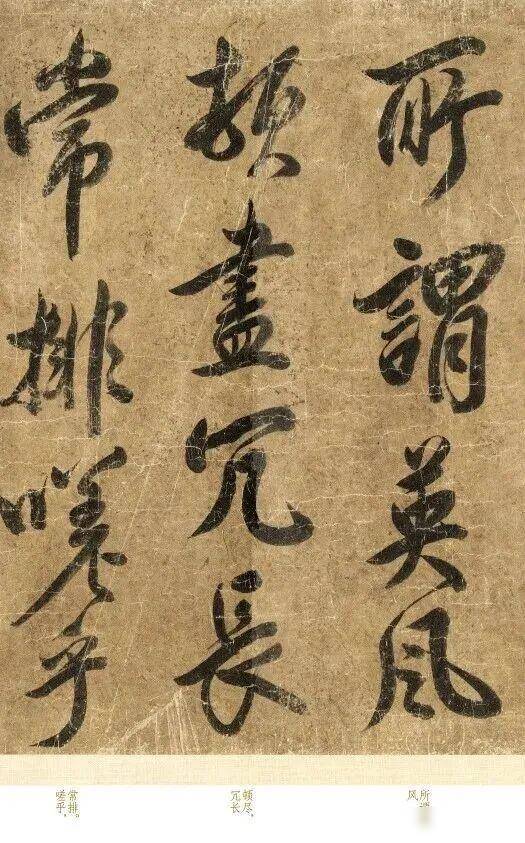 所謂英風
頓盡冗長
常排嗟乎
所
风
顿尽，
冗长
常排。
嗟乎，